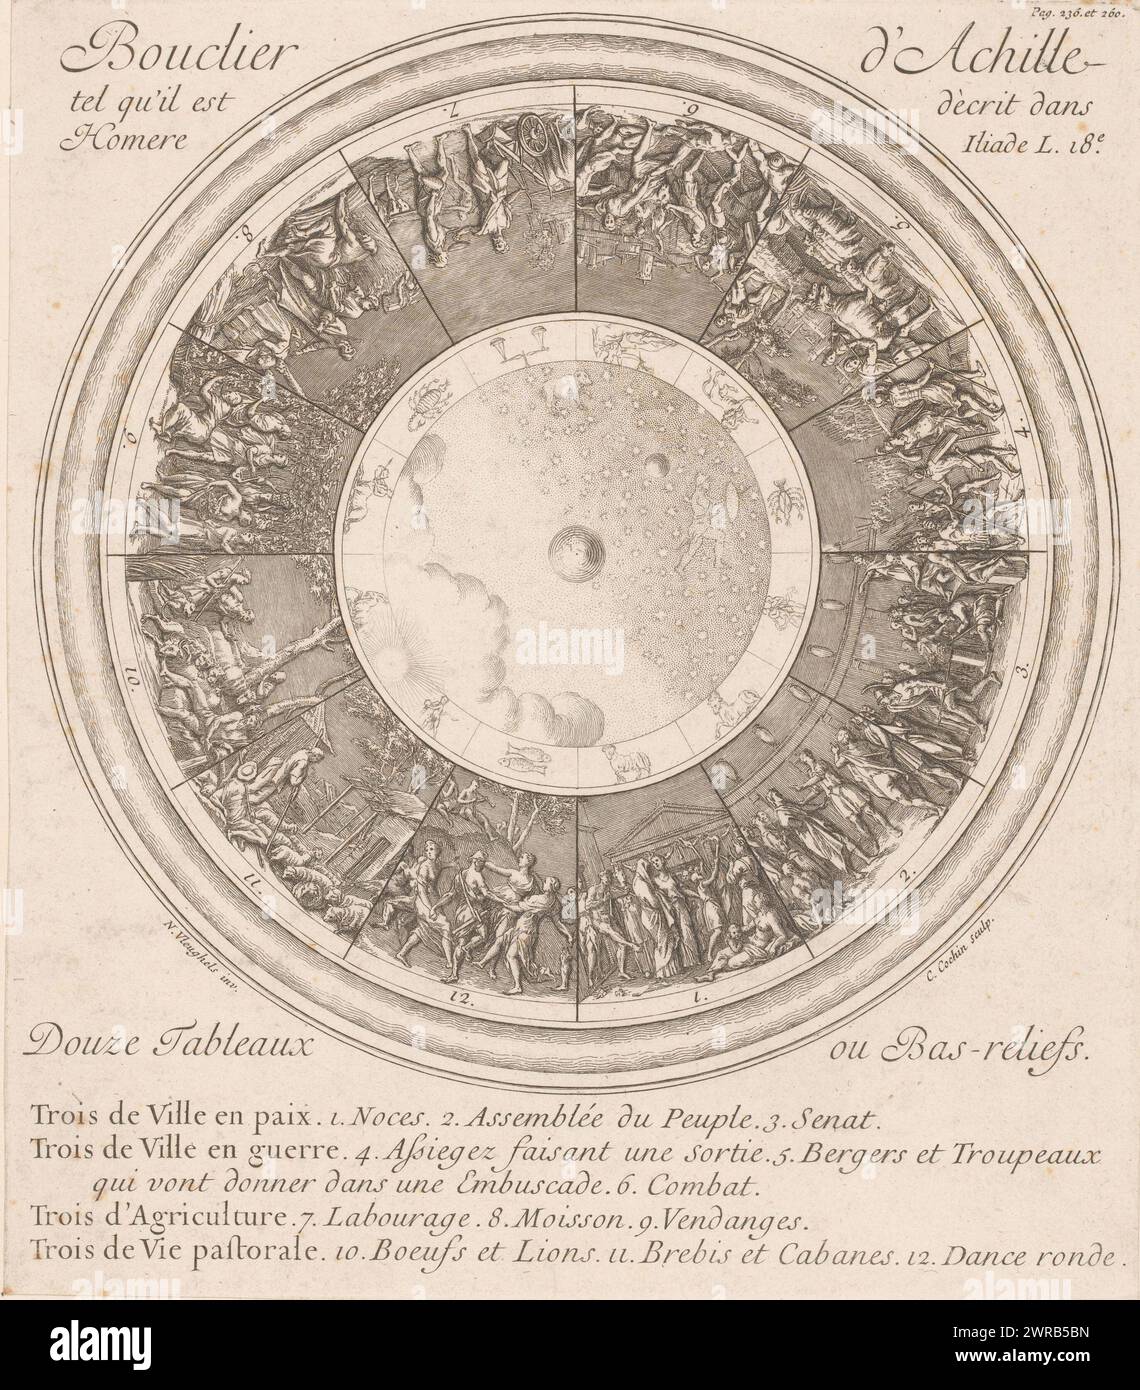 Pag. 236. et 260.
Bouclier d'Achille
tel qu'il est dècrit dans
Homere Iliade L. 18.e
7.
6.
8.
5.
9.
4.
10.
3.
11.
2.
12.
1.
N. Vleughels inv.
C. Cochin sculp.
Douze Tableaux ou Bas-reliefs.
Trois de Ville en paix. 1. Noces. 2. Assemblée du Peuple. 3. Senat.
Trois de Ville en guerre. 4. Assiegez faisant une sortie. 5. Bergers et Troupeaux
qui vont donner dans une Embuscade. 6. Combat.
Trois d'Agriculture. 7. Labourage. 8. Moisson. 9. Vendanges.
Trois de Vie pastorale. 10. Boeufs et Lions. 11. Brebis et Cabanes. 12. Dance ronde.
alamy
Image ID: 2WRB5BN
www.alamy.com